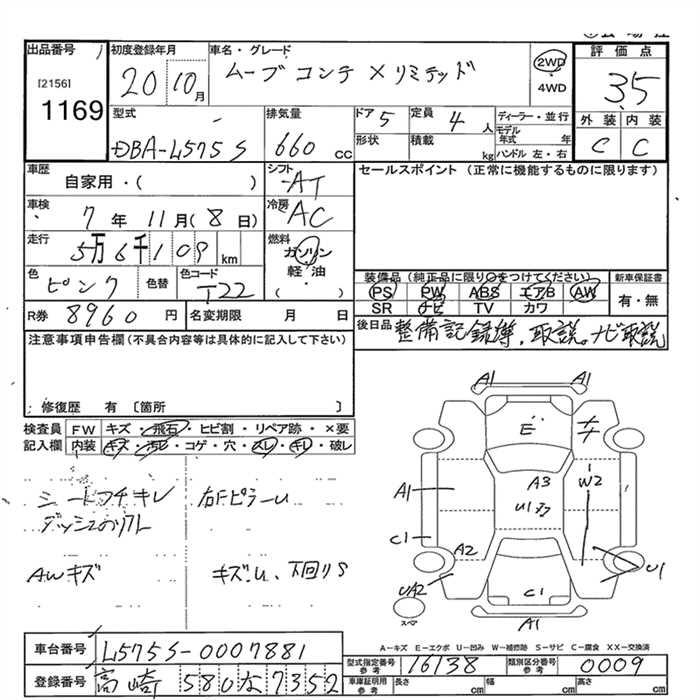 出品番号
[2156]
1169
初度登録年月
20 10月
車名・グレード
ムーブコンテ X リミテッド
2WD
・
4WD
評価点
3.5
外装 内装
C C
型式
DBA-L575S
排気量
660 cc
ドア 5
形状
定員 4 人
積載 kg
ディーラー・並行
モデル年式 年
ハンドル 左・右
車歴
自家用・( )
シフト
AT
セールスポイント(正常に機能するものに限ります)
車検
7年 11月(8日)
冷房
AC
走行
5万6千109 km
燃料
ガソリン
軽・油
( )
色
ピンク
色替
色コード
T22
装備品(純正品に限り○をつけてください)
PS PW ABS エアB AW
SR ナビ TV カワ
新車保証書
有・無
R券 8960円
名変期限 月 日
後日品 整備記録簿、取説、ナビ取説
注意事項申告欄(不具合内容等は具体的に記入して下さい)
修復歴 有〔箇所 〕
検査員記入欄
FW キズ・飛石・ヒビ割・リペア跡・×要
内装 キズ・コゲ・穴・スレ・キレ・破レ
シートフチキレ
右Fピラーu
AWキズ
キズ.u. 下回りS
A1
E
A3
W2
A1
C1
A2
UA2
スペア
C1
U1
A1
A-キズ E-エクボ U-凹み W-補修跡 S-サビ C-腐食 XX-交換済
車台番号 L575S-0007881
型式指定番号参考 16138
類別区分番号参考 0009
登録番号 高崎 580 な 7352
車庫証明用参考 長さ cm 幅 cm 高さ cm